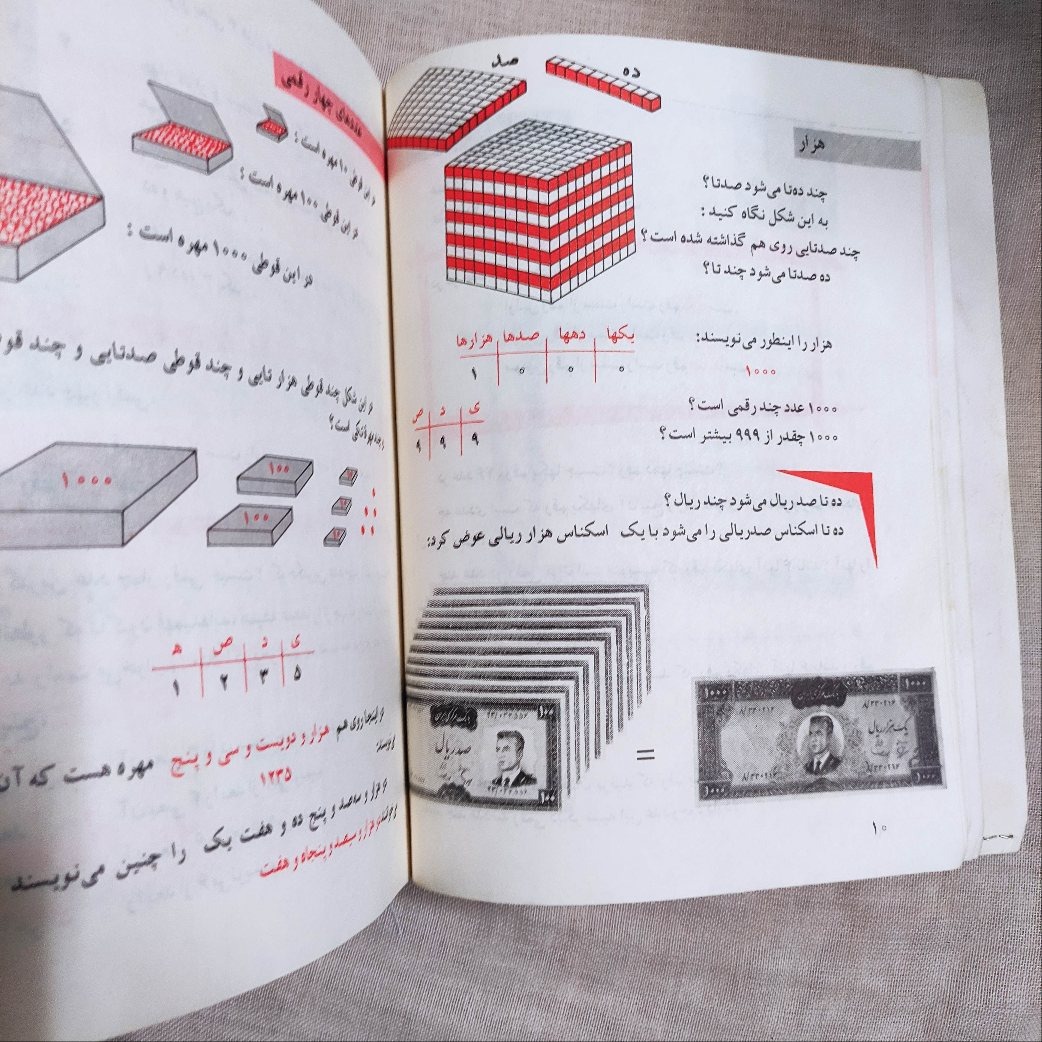 صد
ده
هزار
چند ده‌تا می‌شود صدتا؟
به این شکل نگاه کنید:
چند صدتایی روی هم گذاشته شده است؟
ده صدتا می‌شود چند تا؟
هزار را اینطور می‌نویسند:
۱۰۰۰
یکها دهها صدها هزارها
۰ ۰ ۰ ۱
۱۰۰۰ عدد چند رقمی است؟
۱۰۰۰ چقدر از ۹۹۹ بیشتر است؟
ی د ص
۹ ۹ ۹
ده تا صد ریال می‌شود چند ریال؟
ده تا اسکناس صدریالی را می‌شود با یک اسکناس هزار ریالی عوض کرد:
صد ریال
۱۰۰
۱۰۰
=
۱۰۰۰
۱۰۰۰
یک هزار ریال
۱۰۰۰
۱۰۰۰
۱۰
عددهای چهار رقمی
در این قوطی ۱۰ مهره است:
در این قوطی ۱۰۰ مهره است:
در این قوطی ۱۰۰۰ مهره است:
در این شکل چند قوطی هزار تایی و چند قوطی صدتایی و چند
و چند مهرهٔ تکی است؟
۱۰۰۰
۱۰۰
۱۰۰
ی د ص ه
۵ ۳ ۲ ۱
در اینجا روی هم هزار و دویست و سی و پنج مهره هست که آن
۱۲۳۵
دو هزار و سه‌صد و پنج ده و هفت یک را چنین می‌نویسند
دو هزار و سیصد و پنجاه و هفت